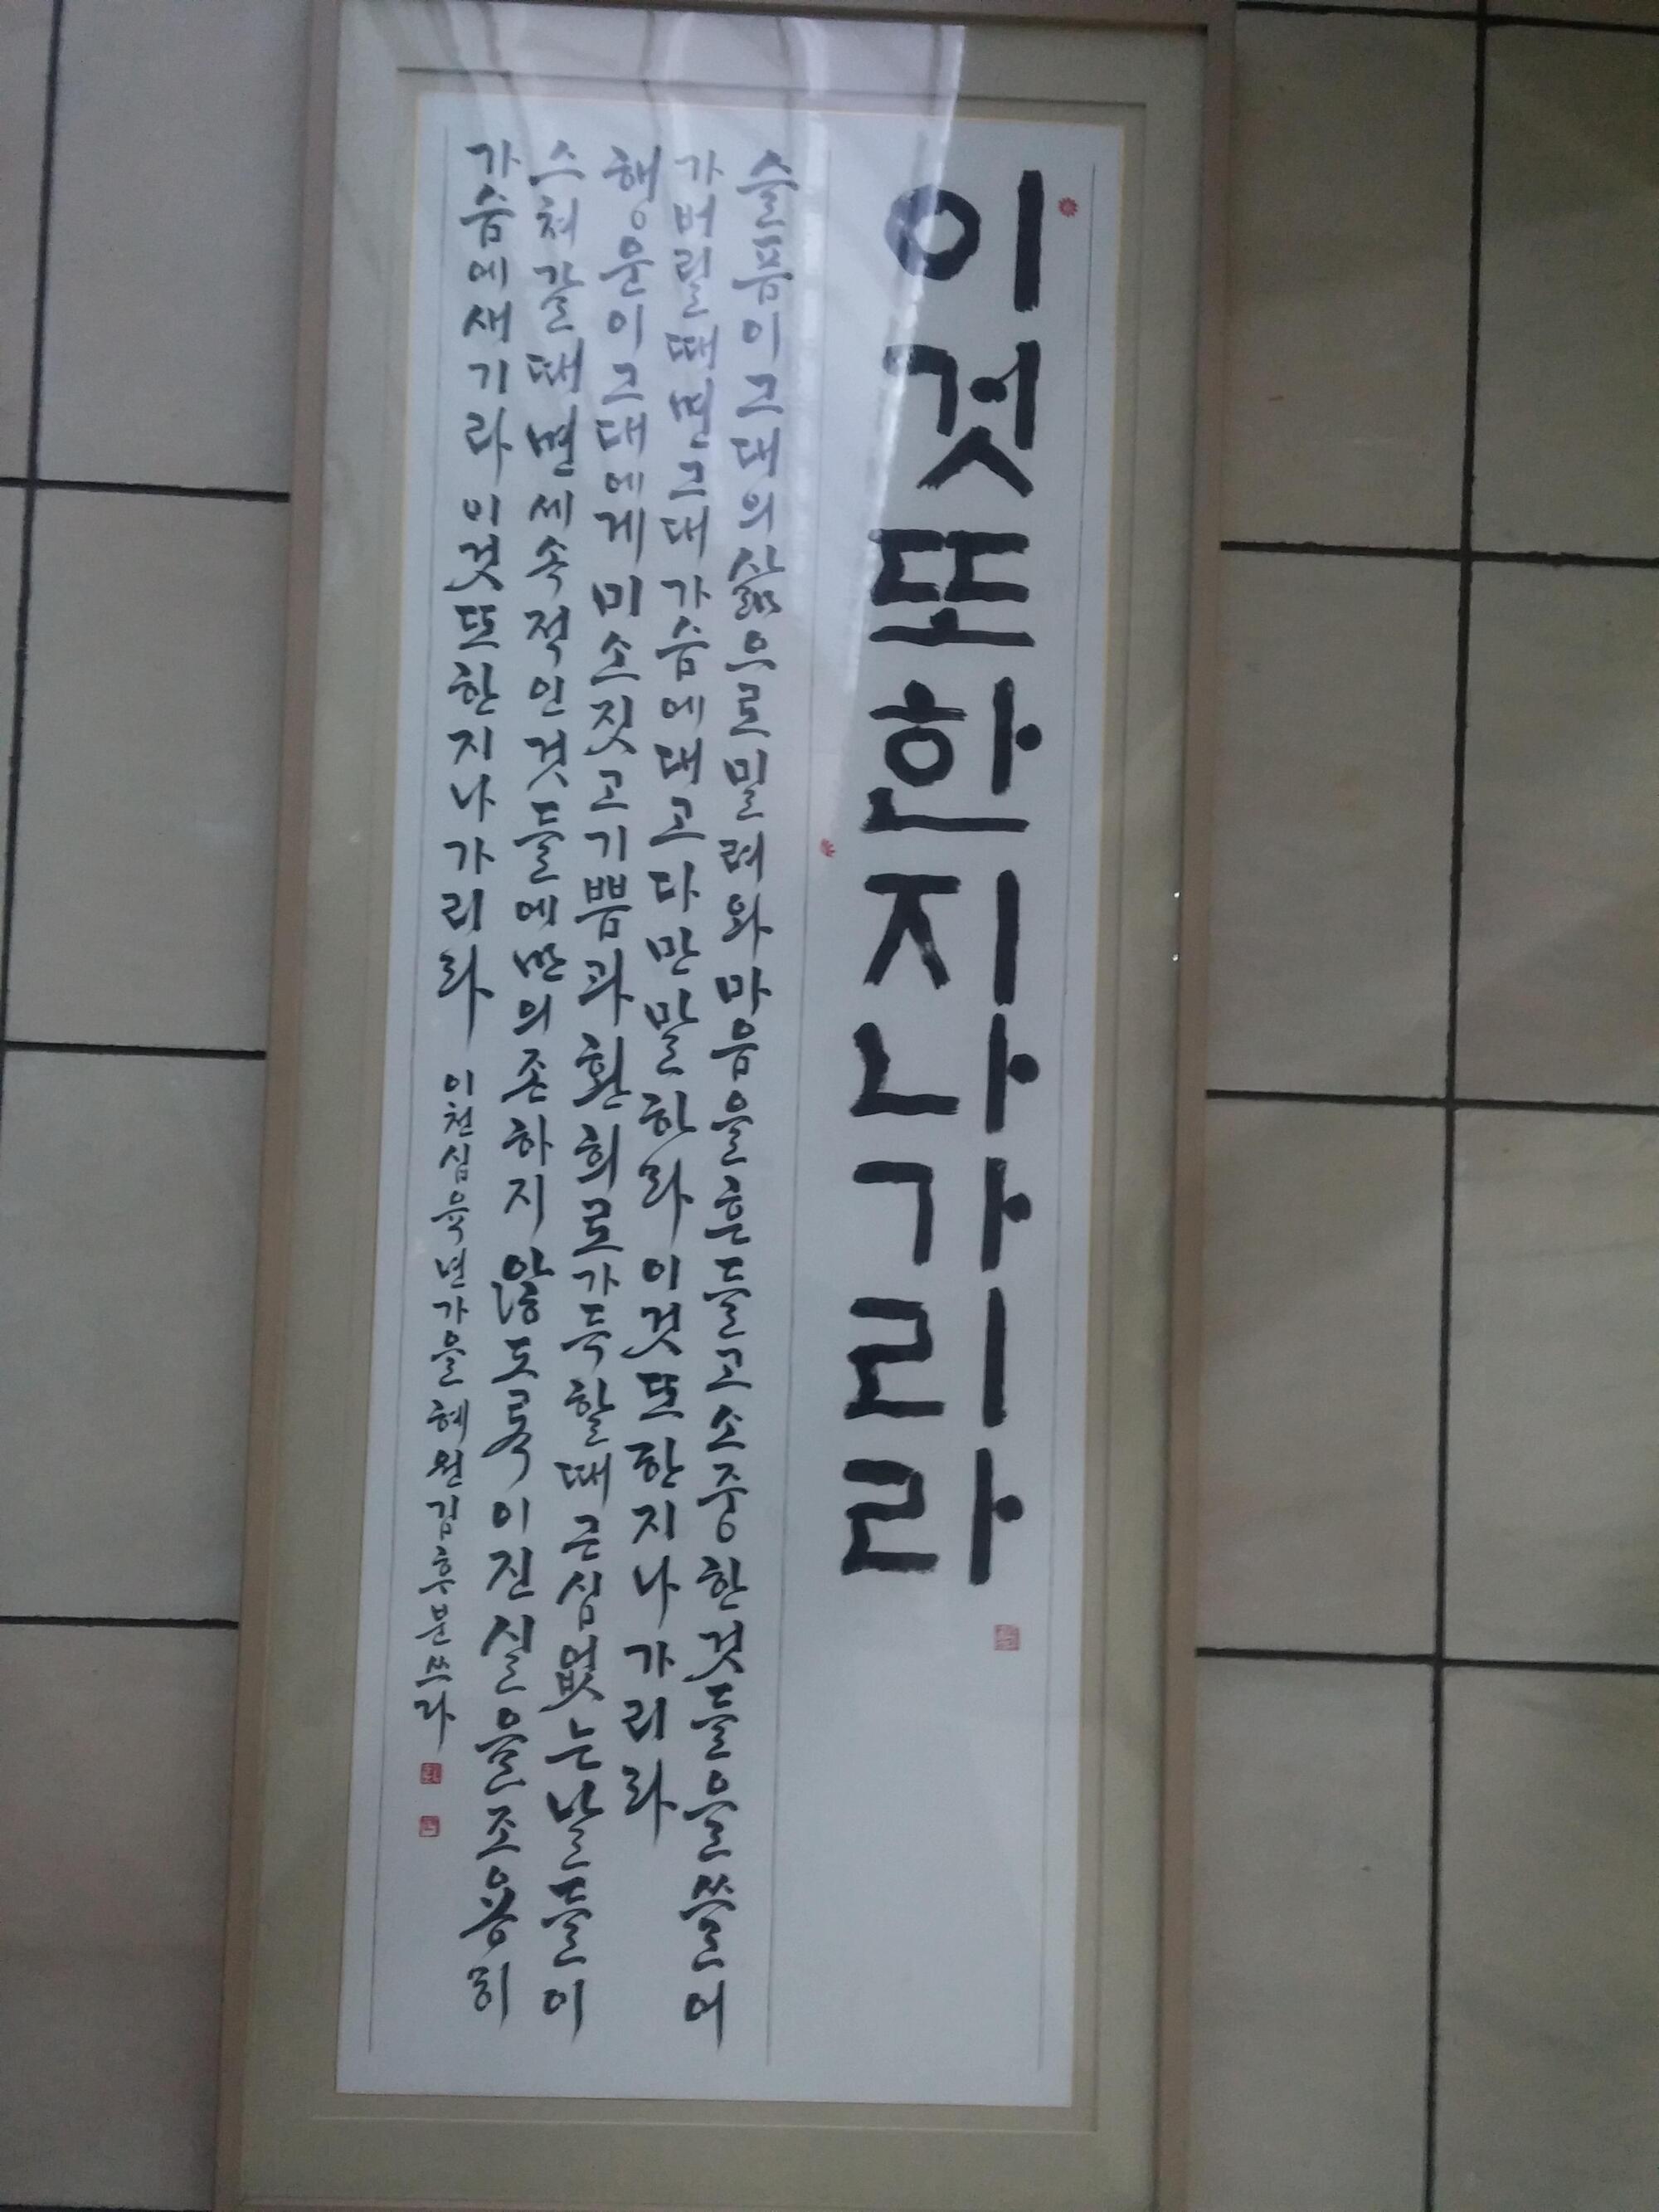 이것또한지나가리라
슬픔이그대의삶으로밀려와마음을흔들고소중한것들을쓸어
가버릴때면그대가슴에대고다만말하라이것또한지나가리라
행운이그대에게미소짓고기쁨과환희로가득할때근심없는날들이
스쳐갈때면세속적인것들에만의존하지않도록이진실을조용히
가슴에새기라이것또한지나가리라 이천십육년가을혜원김후분쓰라